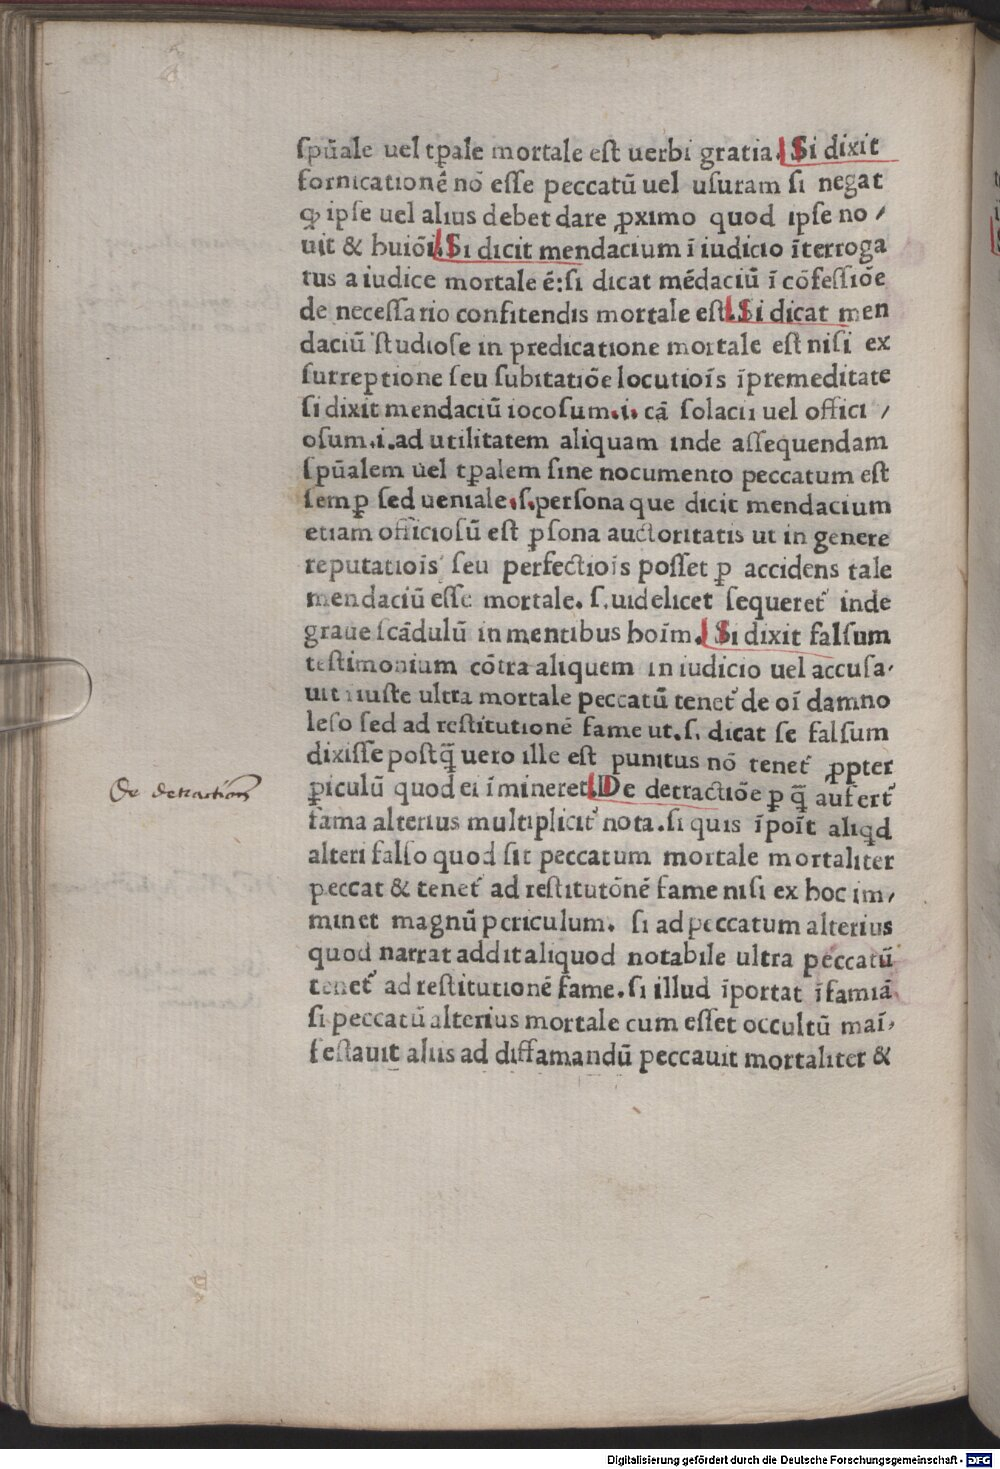 ſpūale uel tꝑale mortale eſt uerbi gratia. Si dixit
fornicationē nō eſſe peccatū uel uſuram ſi negat
ꝙ ipſe uel alius debet dare ꝓximo quod ipſe no /
uit & huiōi. Si dicit mendacium ī iudicio īterroga
tus a iudice mortale ē: ſi dicat mēdaciū ī cōfeſſiōe
de neceſſario confitendis mortale eſt. Si dicat men
daciū ſtudioſe in predicatione mortale eſt niſi ex
ſurreptione ſeu ſubitatiōe locutioīs īpremeditate
ſi dixit mendaciū iocoſum .i. cā ſolacii uel offici /
oſum .i. ad utilitatem aliquam inde aſſequendam
ſpūalem uel tꝑalem ſine nocumento peccatum eſt
ſemꝑ ſed ueniale .ſ. perſona que dicit mendacium
etiam officioſū eſt ꝑſona auctoritatis ut in genere
reputatioīs ſeu perfectiois poſſet ꝑ accidens tale
mendaciū eſſe mortale. ſ. uidelicet ſequeret᷑ inde
graue ſcādulū in mentibus hoīm. Si dixit falſum
teſtimonium cōtra aliquem in iudicio uel accuſa-
uit iiuſte ultra mortale peccatū tenet᷑ de oī damno
leſo ſed ad reſtitutionē fame ut .ſ. dicat ſe falſum
dixiſſe poſtq̄ uero ille eſt punitus nō tenet᷑ ꝓpter
De detractiōne
ꝑiculū quod ei īmineret. De detractiōe ꝑ q̄ aufert᷑
fama alterius multiplicit᷑ nota. ſi quis īpoīt aliqd
alteri falſo quod ſit peccatum mortale mortaliter
peccat & tenet᷑ ad reſtitutōnē fame niſi ex hoc im /
minet magnū periculum. ſi ad peccatum alterius
quod narrat addit aliquod notabile ultra peccatū
tenet᷑ ad reſtitutionē fame. ſi illud īportat īfamiā
ſi peccatū alterius mortale cum eſſet occultū maī-
feſtauit aliis ad diffamandū peccauit mortaliter &
Digitalisierung gefördert durch die Deutsche Forschungsgemeinschaft - DFG